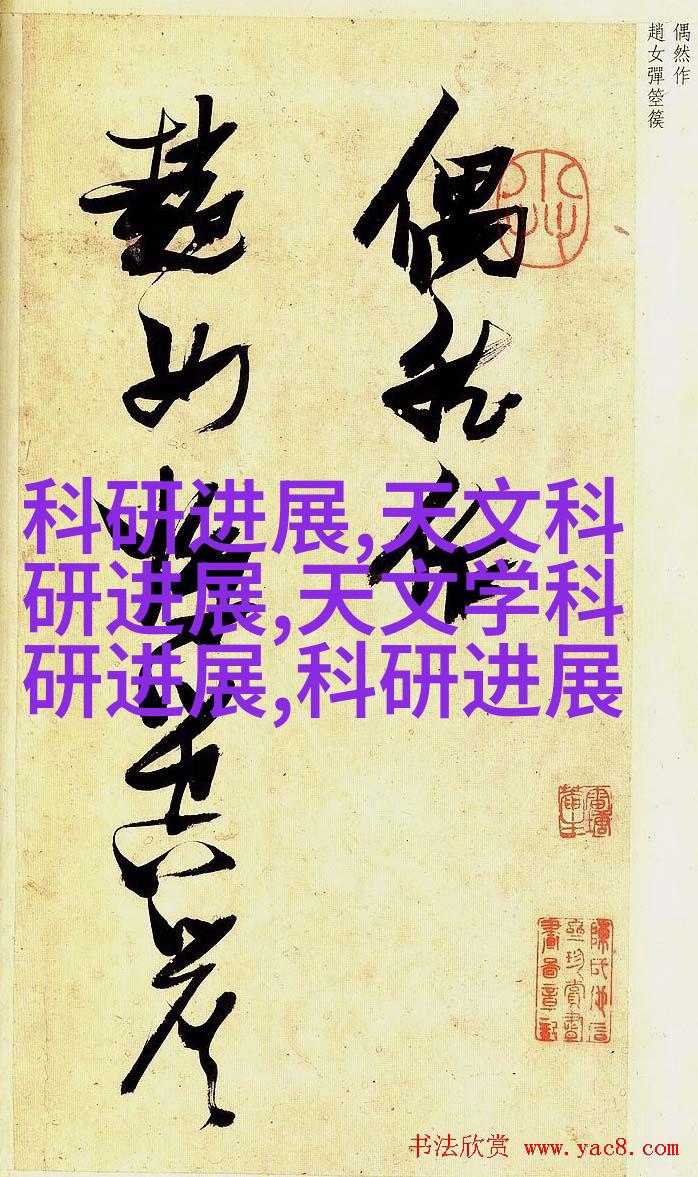 偶然作
趙女彈箜篌
偶然作
趙女彈箜篌
科研进展,天文科
研进展,天文学科
研进展,科研进展
书法欣赏 www.yac8.com